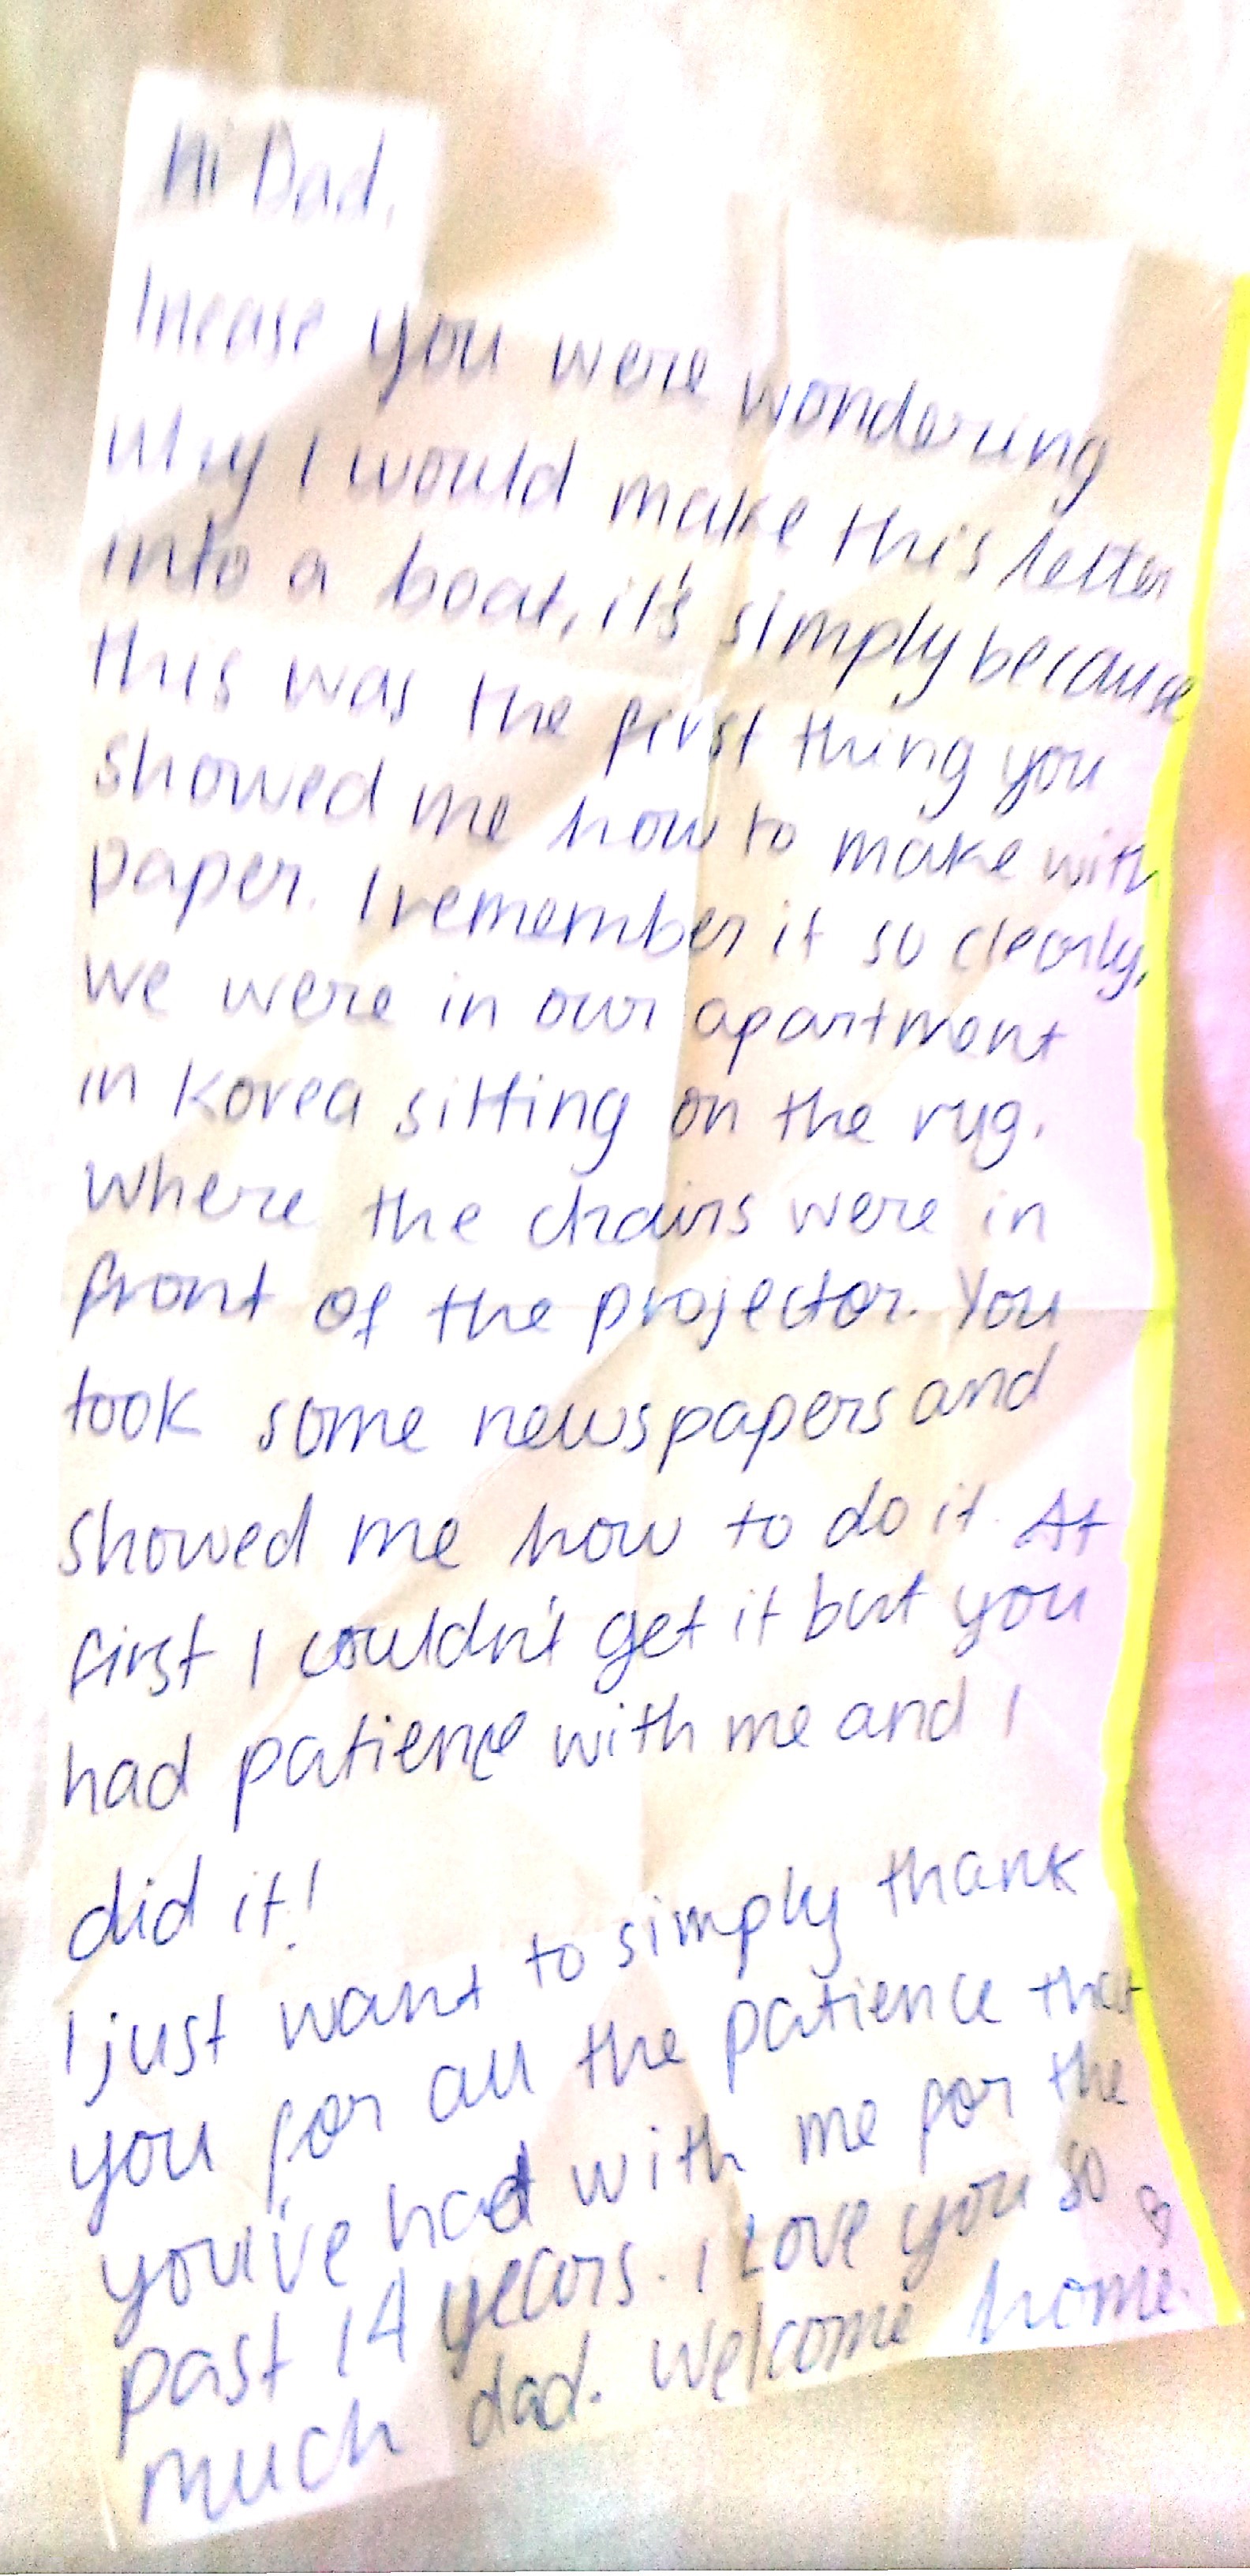 Hi Dad,
Incase you were wondering
why I would make this letter
into a boat, it's simply because
this was the first thing you
showed me how to make with
paper. I remember it so clearly,
we were in our apartment
in Korea sitting on the rug.
Where the chairs were in
front of the projector. You
took some newspapers and
showed me how to do it. At
first I couldn't get it but you
had patience with me and I
did it!
I just want to simply thank
you for all the patience that
you've had with me for the
past 14 years. I Love you so
much dad. Welcome home.